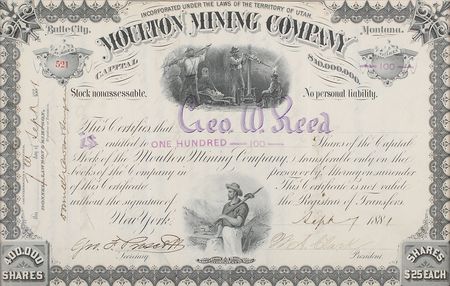 INCORPORATED UNDER THE LAWS OF THE TERRITORY OF UTAH.
Butte City. Montana.
MOULTON MINING COMPANY
521
CAPITAL $10,000,000.
100
Stock nonassessable. No personal liability.
This Certifies that Geo. W. Reed
is entitled to ONE HUNDRED 100 Shares of the Capital
Stock of the Moulton Mining Company, transferable only on the
books of the Company in person or by Attorney on surrender
of this Certificate This Certificate is not valid
without the signature of the Registrar of Transfers.
New York, Sept 7 1881
Secretary. President
400,000 SHARES
SHARES $25 EACH